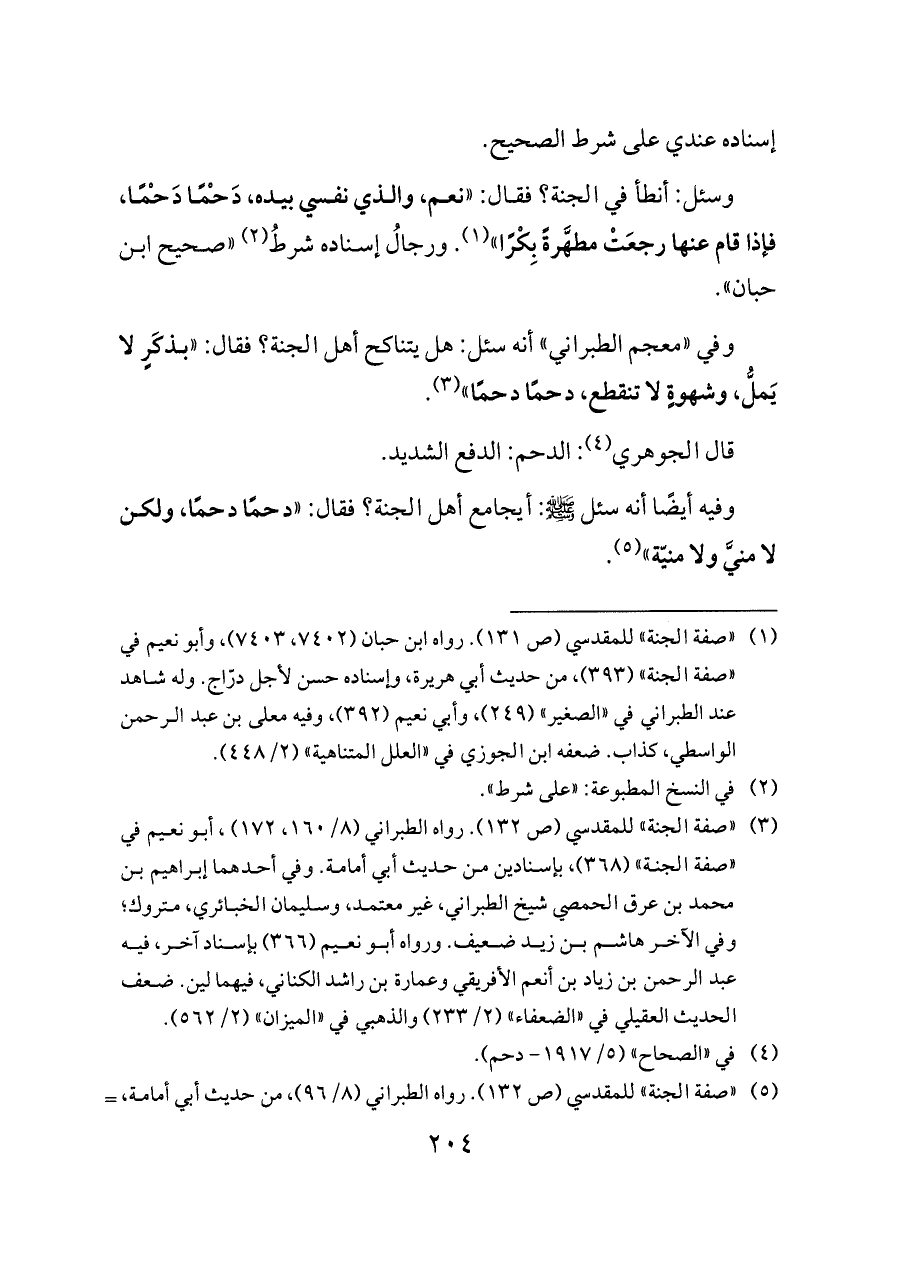 إسناده عندي على شرط الصحيح.
وسئل: أنطأ في الجنة؟ فقال: «نعم، والذي نفسي بيده، دَحْمًا دَحْمًا،
فإذا قام عنها رجعَتْ مطهَّرةً بِكْرًا»(١). ورجالُ إسناده شرطُ(٢) «صحيح ابن
حبان».
وفي «معجم الطبراني» أنه سئل: هل يتناكح أهل الجنة؟ فقال: «بذكَرٍ لا
يَملُّ، وشهوةٍ لا تنقطع، دحمًا دحمًا»(٣).
قال الجوهري(٤): الدحم: الدفع الشديد.
وفيه أيضًا أنه سئل ﷺ: أيجامع أهل الجنة؟ فقال: «دحمًا دحمًا، ولكن
لا منيَّ ولا منيّة»(٥).
(١) «صفة الجنة» للمقدسي (ص ١٣١). رواه ابن حبان (٧٤٠٢، ٧٤٠٣)، وأبو نعيم في
«صفة الجنة» (٣٩٣)، من حديث أبي هريرة، وإسناده حسن لأجل درّاج. وله شاهد
عند الطبراني في «الصغير» (٢٤٩)، وأبي نعيم (٣٩٢)، وفيه معلى بن عبد الرحمن
الواسطي، كذاب. ضعفه ابن الجوزي في «العلل المتناهية» (٢/ ٤٤٨).
(٢) في النسخ المطبوعة: «على شرط».
(٣) «صفة الجنة» للمقدسي (ص ١٣٢). رواه الطبراني (٨/ ١٦٠، ١٧٢) ، أبو نعيم في
«صفة الجنة» (٣٦٨)، بإسنادين من حديث أبي أمامة. وفي أحدهما إبراهيم بن
محمد بن عرق الحمصي شيخ الطبراني، غير معتمد، وسليمان الخبائري، متروك؛
وفي الآخر هاشم بن زيد ضعيف. ورواه أبو نعيم (٣٦٦) بإسناد آخر، فيه
عبد الرحمن بن زياد بن أنعم الأفريقي وعمارة بن راشد الكناني، فيهما لين. ضعف
الحديث العقيلي في «الضعفاء» (٢/ ٢٣٣) والذهبي في «الميزان» (٢/ ٥٦٢).
(٤) في «الصحاح» (٥/ ١٩١٧- دحم).
(٥) «صفة الجنة» للمقدسي (ص ١٣٢). رواه الطبراني (٨/ ٩٦)، من حديث أبي أمامة، =
٢٠٤